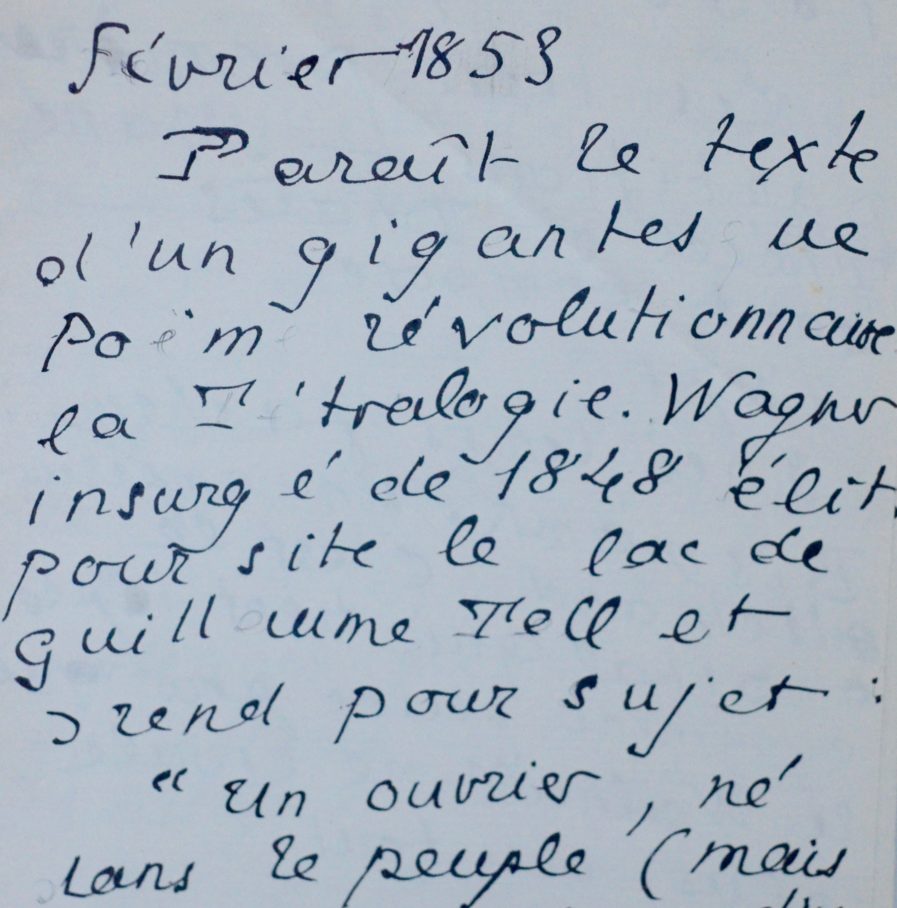 février 1853
Paraît le texte
d'un gigantesque
poème révolutionnaire
la Tétralogie. Wagner
insurgé de 1848 élit
pour site le lac de
guillaume Tell et
prend pour sujet :
“ un ouvrier, né
dans le peuple (mais